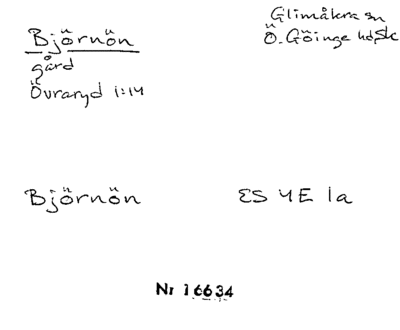 Björnön
gård
Övraryd 1:14
Glimåkra sn
Ö. Göinge hd, Sk
Björnön
ES 4E 1a
Nr 16634